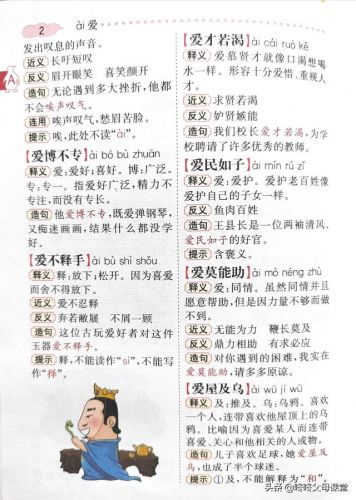 2 ài 爱
A
发出叹息的声音。
近义 长吁短叹
反义 眉开眼笑 喜笑颜开
造句 无论遇到多大挫折,他都
不会唉声叹气。
连用 唉声叹气,愁眉苦脸。
提示 唉,此处不读“ài”。
【爱博不专】ài bó bù zhuān
释义 爱:爱好;喜好。博:广泛。
专:专一。指爱好广泛,精力不
专注,而没有专长。
造句 他爱博不专,既爱弹钢琴,
又痴迷画画,结果什么都没学
好。
【爱不释手】ài bù shì shǒu
释义 释:放下;松开。因为喜爱
而舍不得放下。
近义 爱不忍释
反义 弃若敝屣 不屑一顾
造句 这位古玩爱好者对这件
玉器爱不释手。
提示 释,不能读作“sì”,不能写
作“择”。
【爱才若渴】ài cái ruò kě
释义 爱慕贤才就像口渴想喝
水一样。形容十分爱惜、重视人
才。
近义 求贤若渴
反义 妒贤嫉能
造句 我们校长爱才若渴,为学
校聘请了许多优秀的教师。
【爱民如子】ài mín rú zǐ
释义 爱:爱护。爱护老百姓像
爱护自己的子女一样。
反义 鱼肉百姓
造句 王县长是一位两袖清风、
爱民如子的好官。
提示 含褒义。
【爱莫能助】ài mò néng zhù
释义 爱:同情。虽然同情并且
愿意帮助,但是因力量不够而做
不到。
近义 无能为力 鞭长莫及
反义 鼎力相助 有求必应
造句 对你遇到的困难,我实在
爱莫能助,请多多原谅。
【爱屋及乌】ài wū jí wū
释义 及:推及。乌:乌鸦。喜欢
一个人,连带喜欢他屋顶上的乌
鸦。比喻因为喜爱某人而连带
喜爱、关心和他相关的人或物。
造句 儿子喜欢足球,她爱屋及
乌,也成了半个球迷。
提示 ①及,不能解释为“和”。
头条@咚咚父母课堂